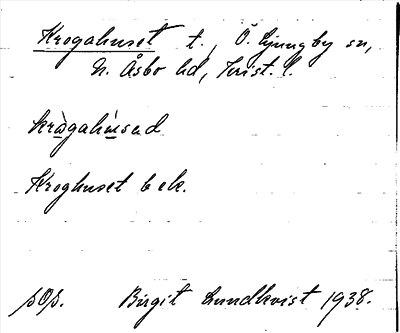 Krogahuset t., Ö. Ljungby sn,
N. Åsbo hd, Krist. l.
kràgahúsed
Kroghuset bek.
sOs. Birgit Lundkvist 1938.